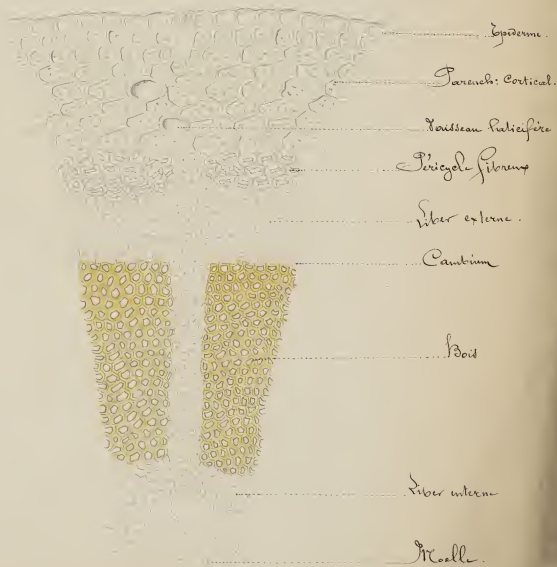 Epiderme.
Parench: Cortical.
Vaisseau laticifère
Péricycle fibreux
Liber externe.
Cambium
Bois
Liber interne
Moelle.